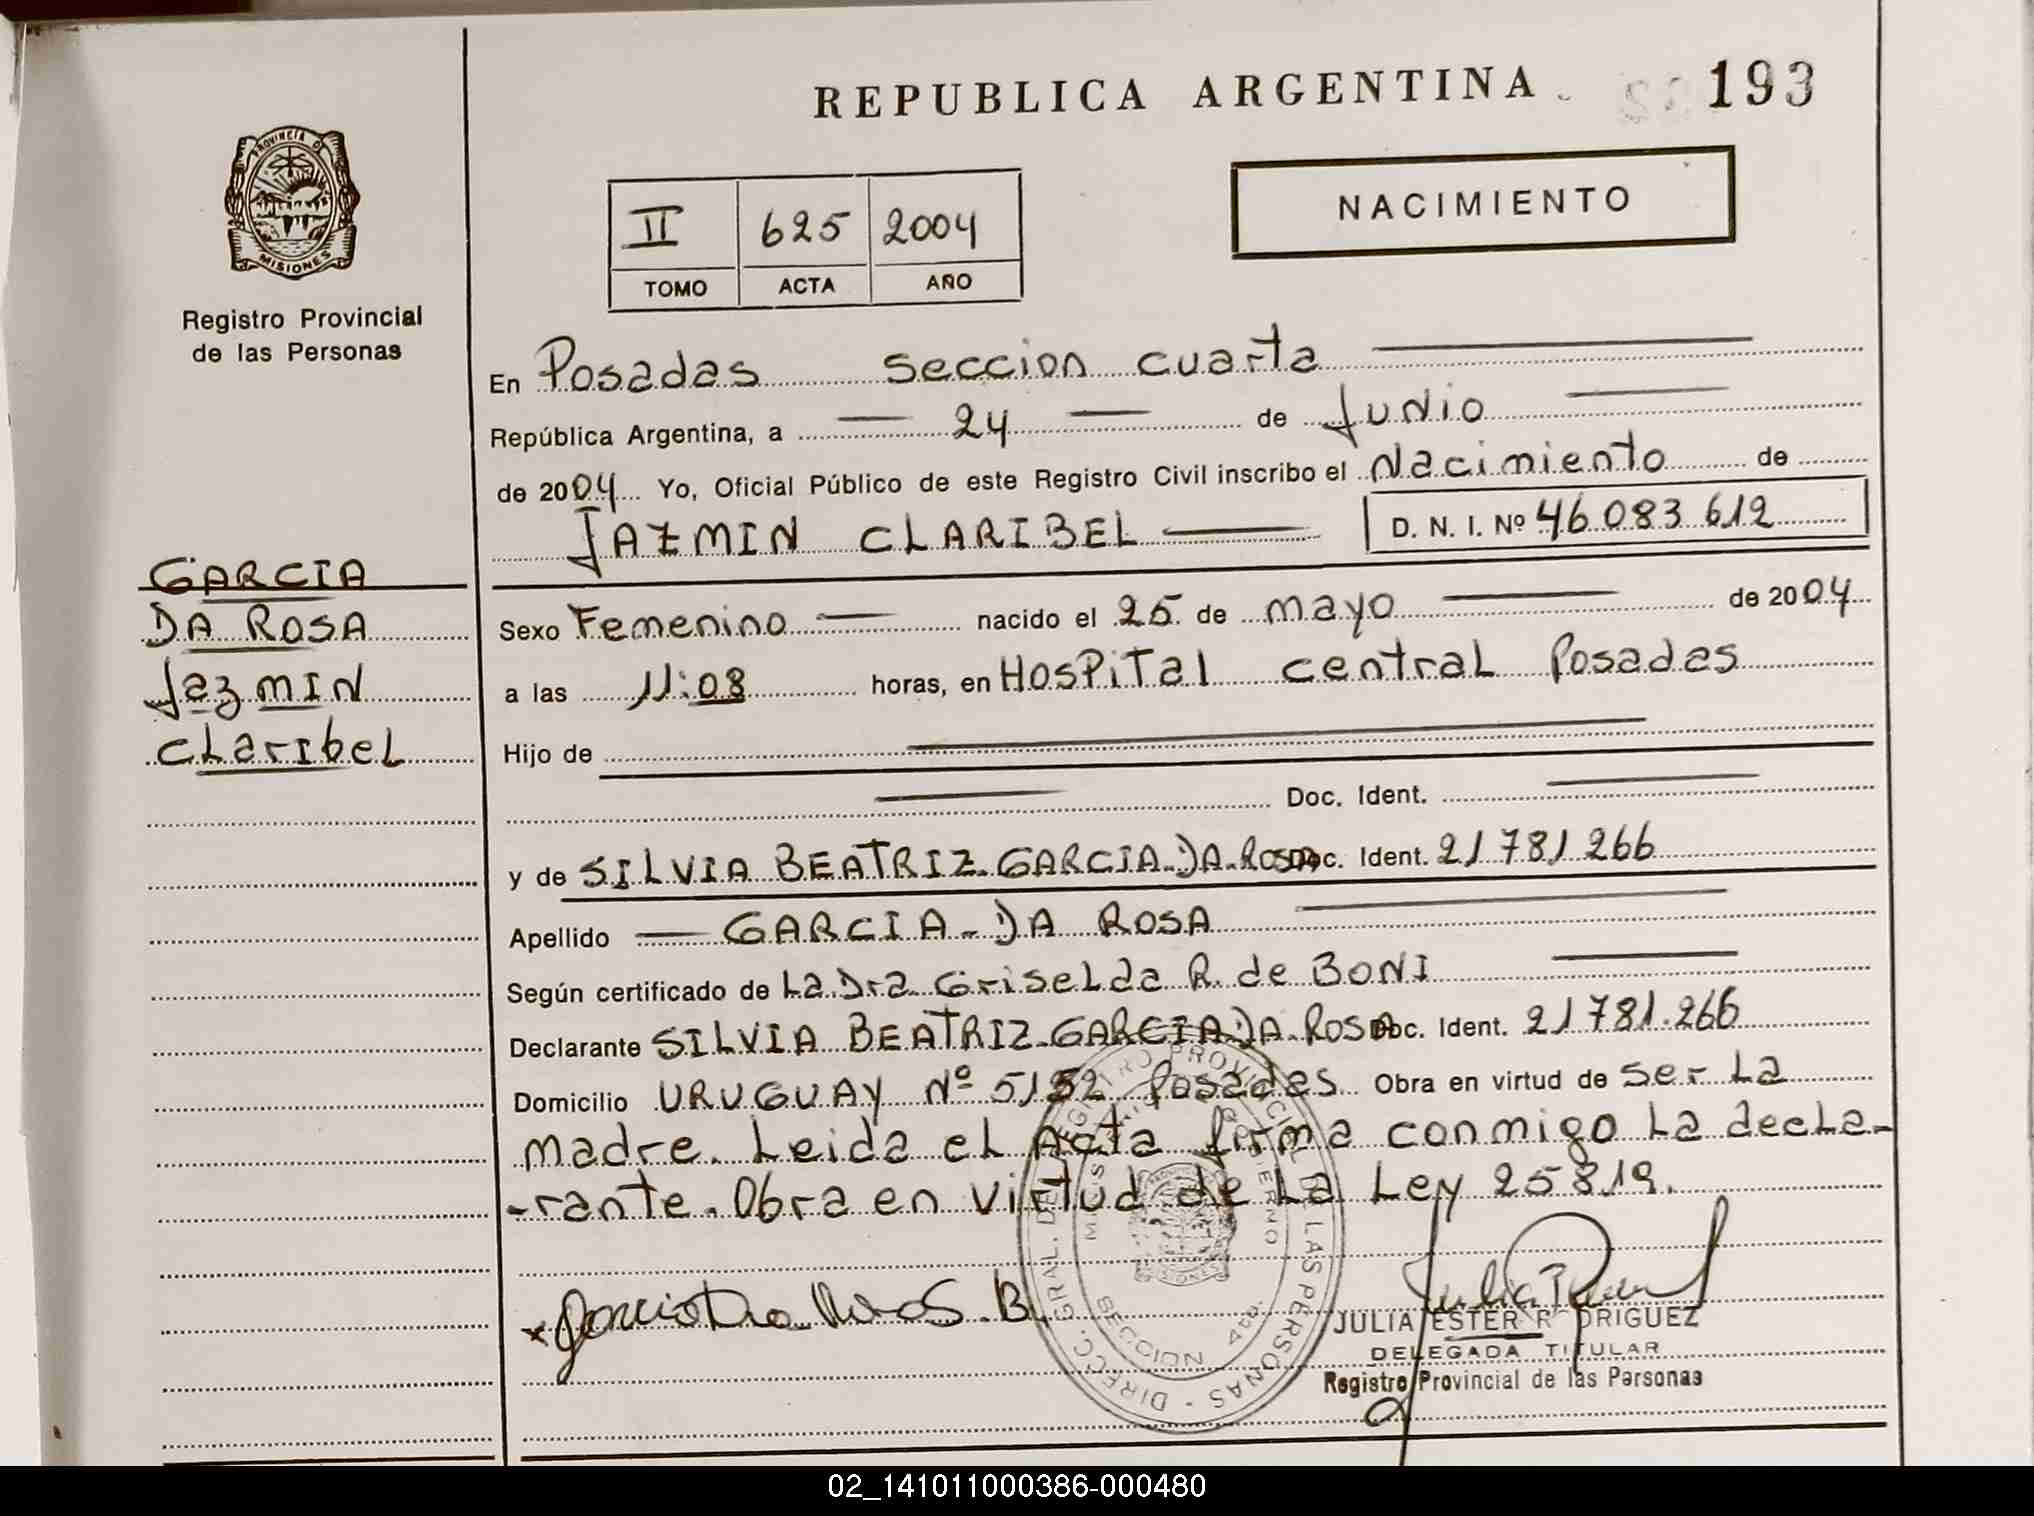 REPUBLICA ARGENTINA
193
PROVINCIA D
MISIONES
Registro Provincial
de las Personas
NACIMIENTO
II 625 2004
TOMO ACTA AÑO
En Posadas seccion cuarta
República Argentina, a 24 de Junio
de 2004 Yo, Oficial Público de este Registro Civil inscribo el Nacimiento de
JAZMIN CLARIBEL D. N. I. Nº 46 083 612
GARCIA
DA ROSA
Jazmin
claribel
Sexo Femenino nacido el 25 de mayo de 2004
a las 11:08 horas, en Hospital central Posadas
Hijo de
Doc. Ident.
y de SILVIA BEATRIZ GARCIA DA ROSA Doc. Ident. 21 781 266
Apellido GARCIA DA ROSA
Según certificado de La Dra Griselda R. de BONI
Declarante SILVIA BEATRIZ GARCIA DA ROSA Doc. Ident. 21 781.266
Domicilio URUGUAY Nº 5152 Posadas Obra en virtud de ser la
madre. Leida el Acta firma conmigo la decla-
-rante. Obra en virtud de la Ley 25819.
DIRECC. GRAL. DEL REGISTRO PROVINCIAL DE LAS PERSONAS
GOBIERNO
MISIONES
SECCION 4ta.
JULIA ESTER RODRIGUEZ
DELEGADA TITULAR
Registro Provincial de las Personas
02_141011000386-000480